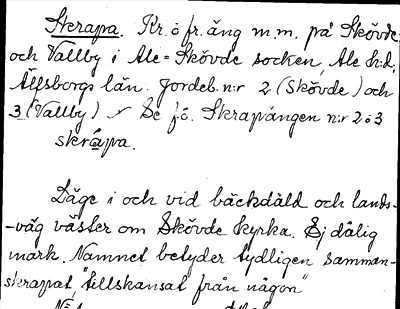 Skrapa. Kr. o fr. äng m.m. på Skövde
och Vallby i Ale=Skövde socken, Ale h:d,
Älfsborgs län. Jordeb. n:r 2 (Skövde) och
3 (Vallby) Se f.ö. Skrapängen n:r 2 o 3
skrapa.
Läge i och vid bäckdäld och lands-
-väg väster om Skövde kyrka. Ej dålig
mark. Namnet betyder tydligen samman-
skrapat, "tillskansat från någon"